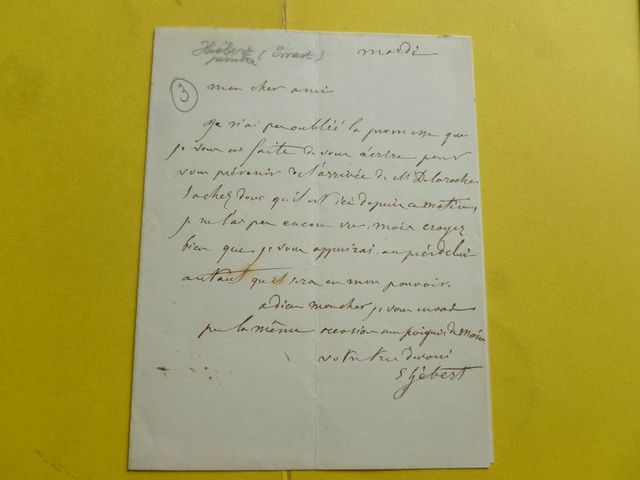 Hébert (Ernest)
peintre
mardi
3
mon cher ami
je n'ai pas oublié la promesse que
je vous ai faite de vous écrire pour
vous prévenir de l'arrivée de Mr Delaroche
sachez donc qu'il est ici depuis ce matin,
je ne l'ai pas encore vu, mais croyez
bien que je vous appuirai auprès de lui
autant qu'il sera en mon pouvoir.
adieu mon cher, je vous envoie
par la même occasion une poignée de main
votre tout dévoué
E Hébert